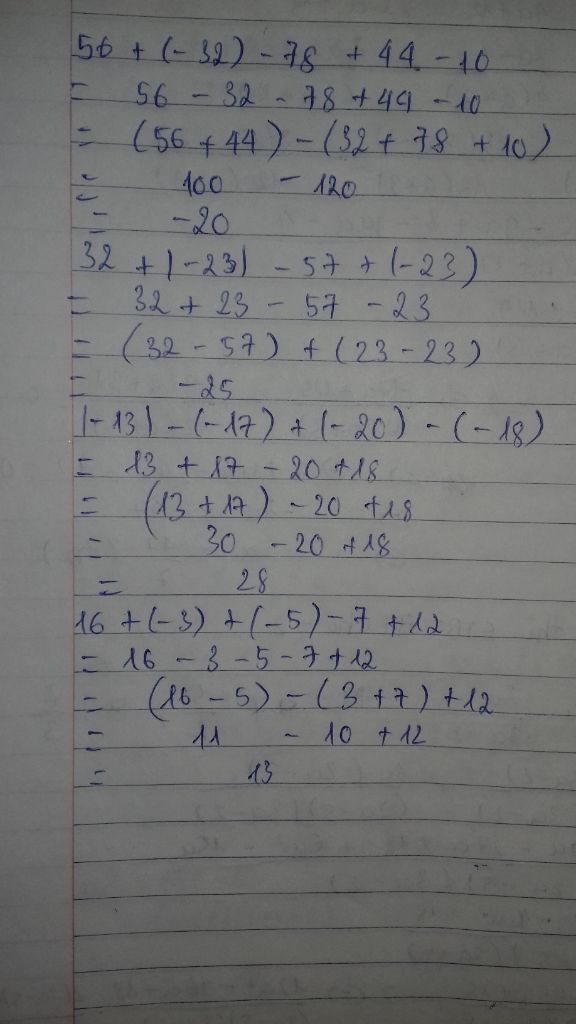 56 + (-32) - 78 + 44 - 10
= 56 - 32 - 78 + 44 - 10
= (56 + 44) - (32 + 78 + 10)
= 100 - 120
= -20
32 + |-23| - 57 + (-23)
= 32 + 23 - 57 - 23
= (32 - 57) + (23 - 23)
= -25
|-13| - (-17) + (-20) - (-18)
= 13 + 17 - 20 + 18
= (13 + 17) - 20 + 18
= 30 - 20 + 18
= 28
16 + (-3) + (-5) - 7 + 12
= 16 - 3 - 5 - 7 + 12
= (16 - 5) - (3 + 7) + 12
= 11 - 10 + 12
= 13